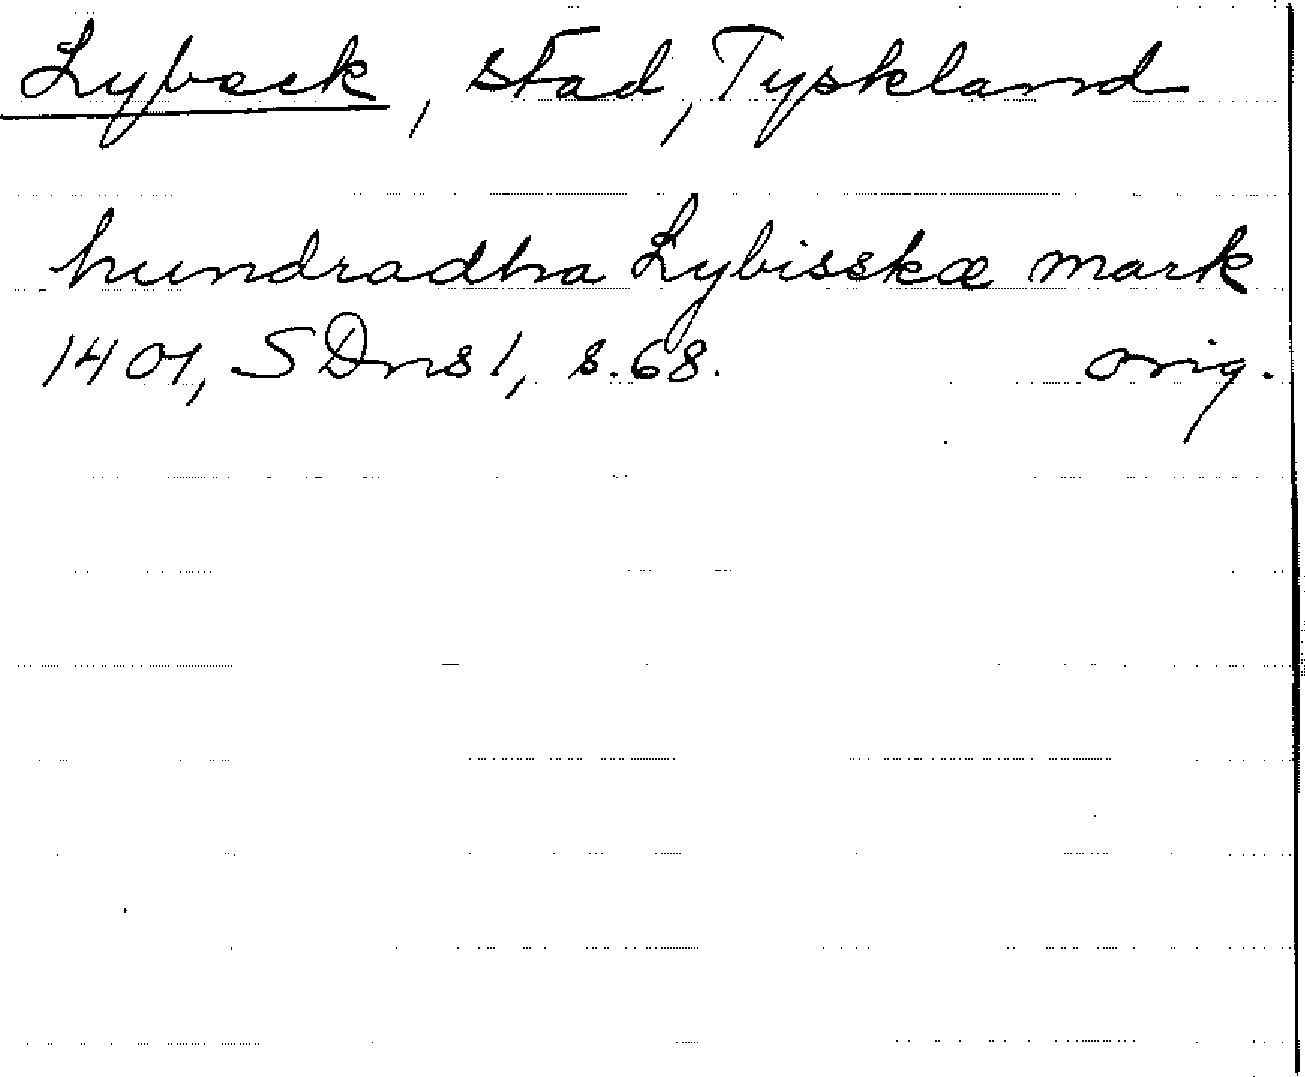 Lybeck, stad, Tyskland
hundradha Lybisskæ mark
1401, SDns 1, s. 68. orig.